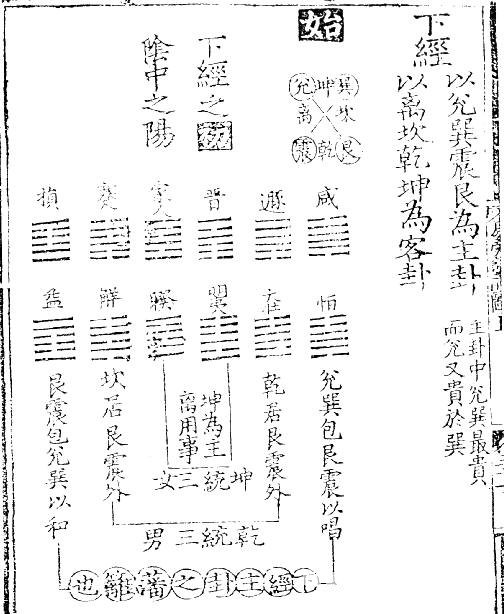 下經
以兊巽震艮為主卦
以离坎乾坤為客卦
主卦中兊巽最貴
而兊又貴於巽
始
巽坤兊
坎离
艮乾震
下經之初
陰中之陽
咸遯晋家人蹇損
恒大壮明夷睽解益
兊巽包艮震以唱
乾居艮震外
坤為主
离用事
坎居艮震外
艮震包兊巽以和
坤統三女
乾統三男
下經主卦之藩籬也